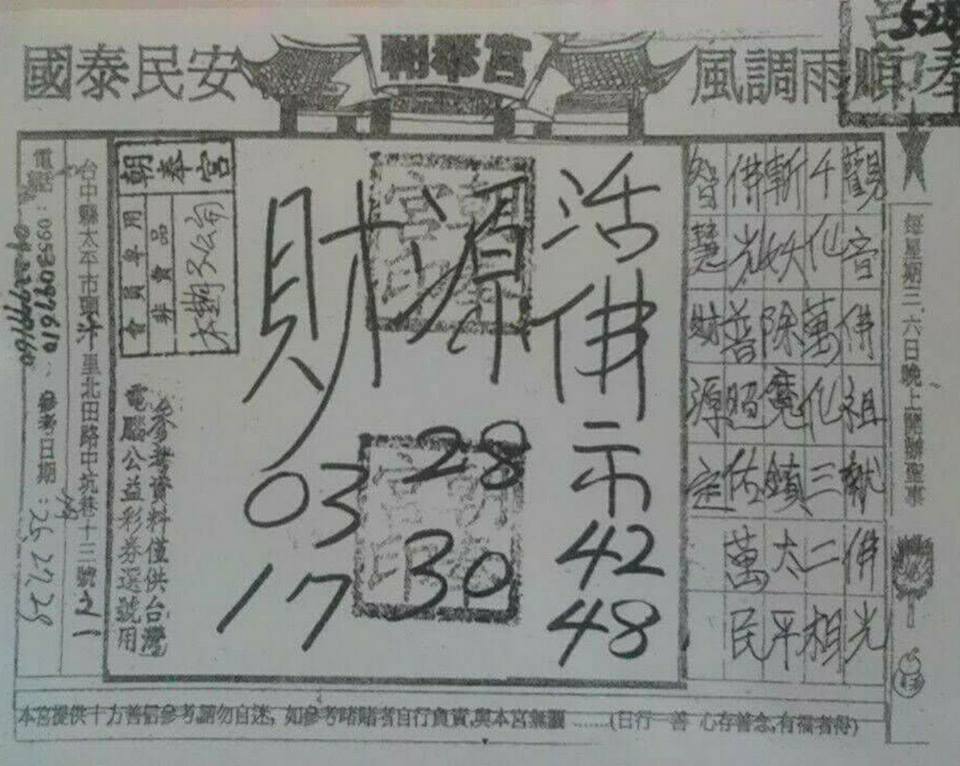 國泰民安
朝奉宮
風調雨順
5-28
每星期三.六日晚上開辦聖事
觀音佛祖
佛光
千化萬化三二相
斬妖除魔鎮太平
佛光普照佑萬民
智慧財源定
活佛示
42
48
財源
28
30
03
17
朝奉宮
會員專用
非賣品
參考資料僅供台灣
電腦公益彩券選號用
台中縣太平市興汴里北田路中坑巷十三號之一
參考日期:
25 27 28
電話:0953097610
本宮提供十方善信參考,請勿自迷,如參考賭賭者自行負責,與本宮無關......(日行一善 心存善念,有福者得)